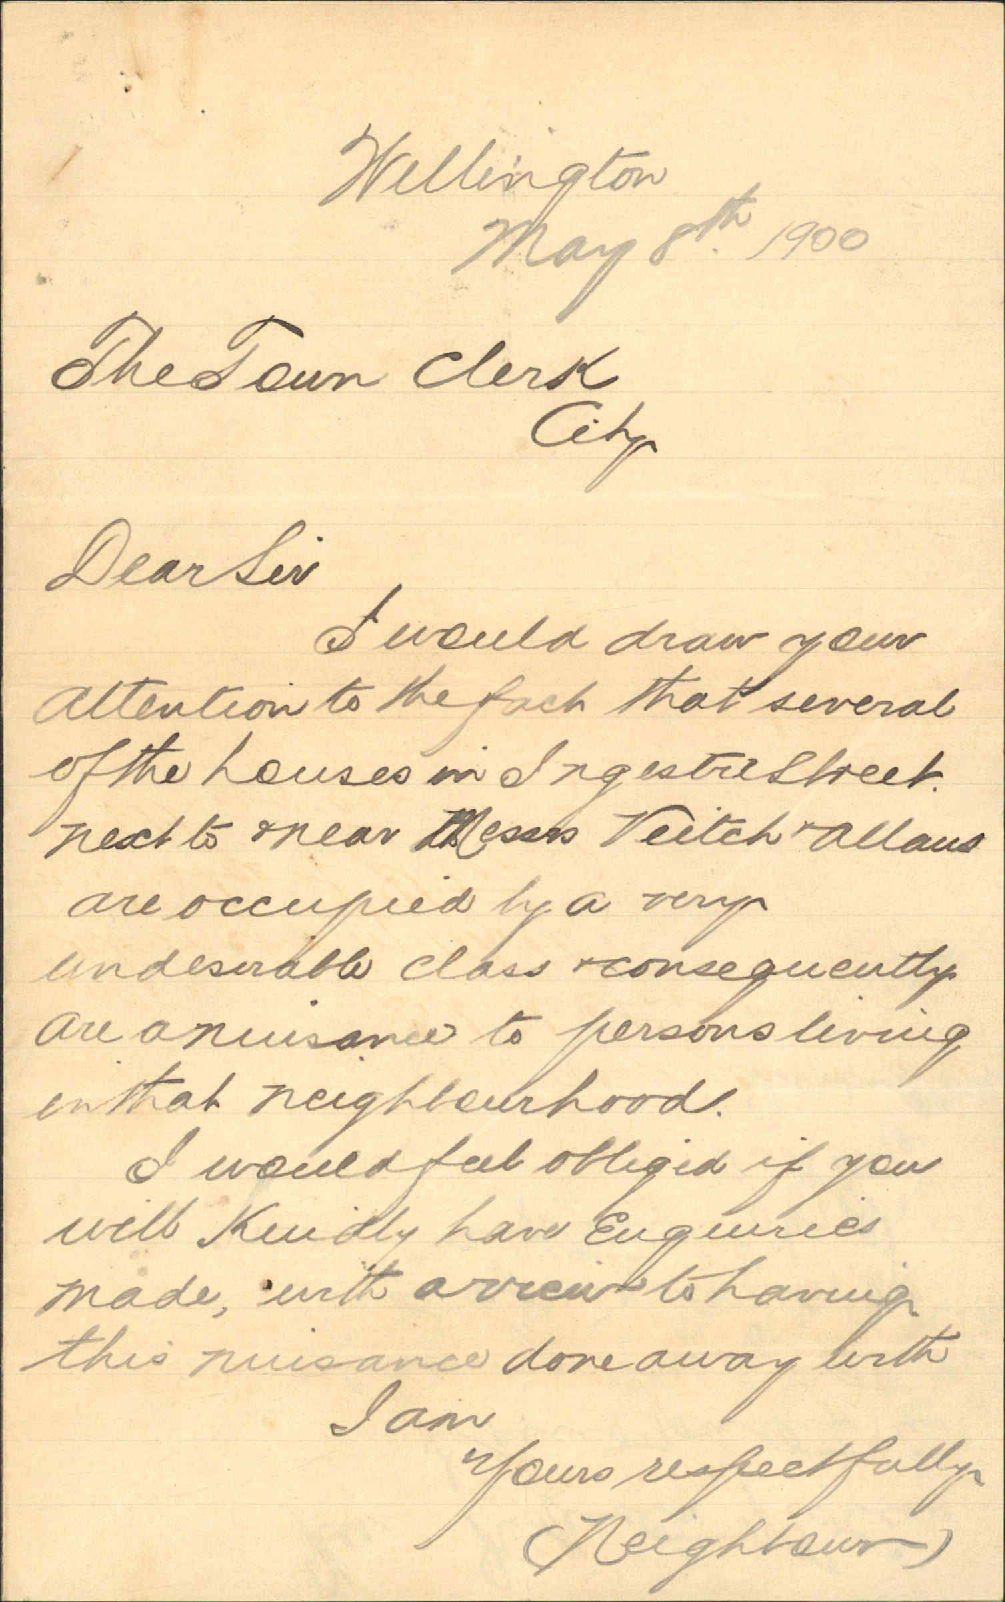 Wellington
May 8th. 1900
The Town Clerk
City
Dear Sir
I would draw your
attention to the fact that several
of the houses in Ingestre Street.
next to & near Messrs Veitch & Allans
are occupied by a very
undesirable class & consequently
are a nuisance to persons living
in that neighbourhood.
I would feel obliged if you
will Kindly have Enquiries
made, with a view to having
this nuisance done away with
I am
Yours respectfully
(Neighbour)